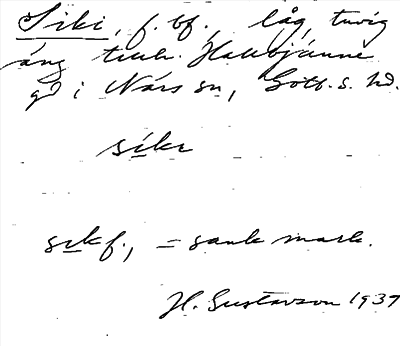 Siki, f. bf., låg, tuvig
äng tillh. Hallbjänne
gd i När sn, Gotl. s. hd.
siki
sik f., = sank mark.
H. Gustavson 1937